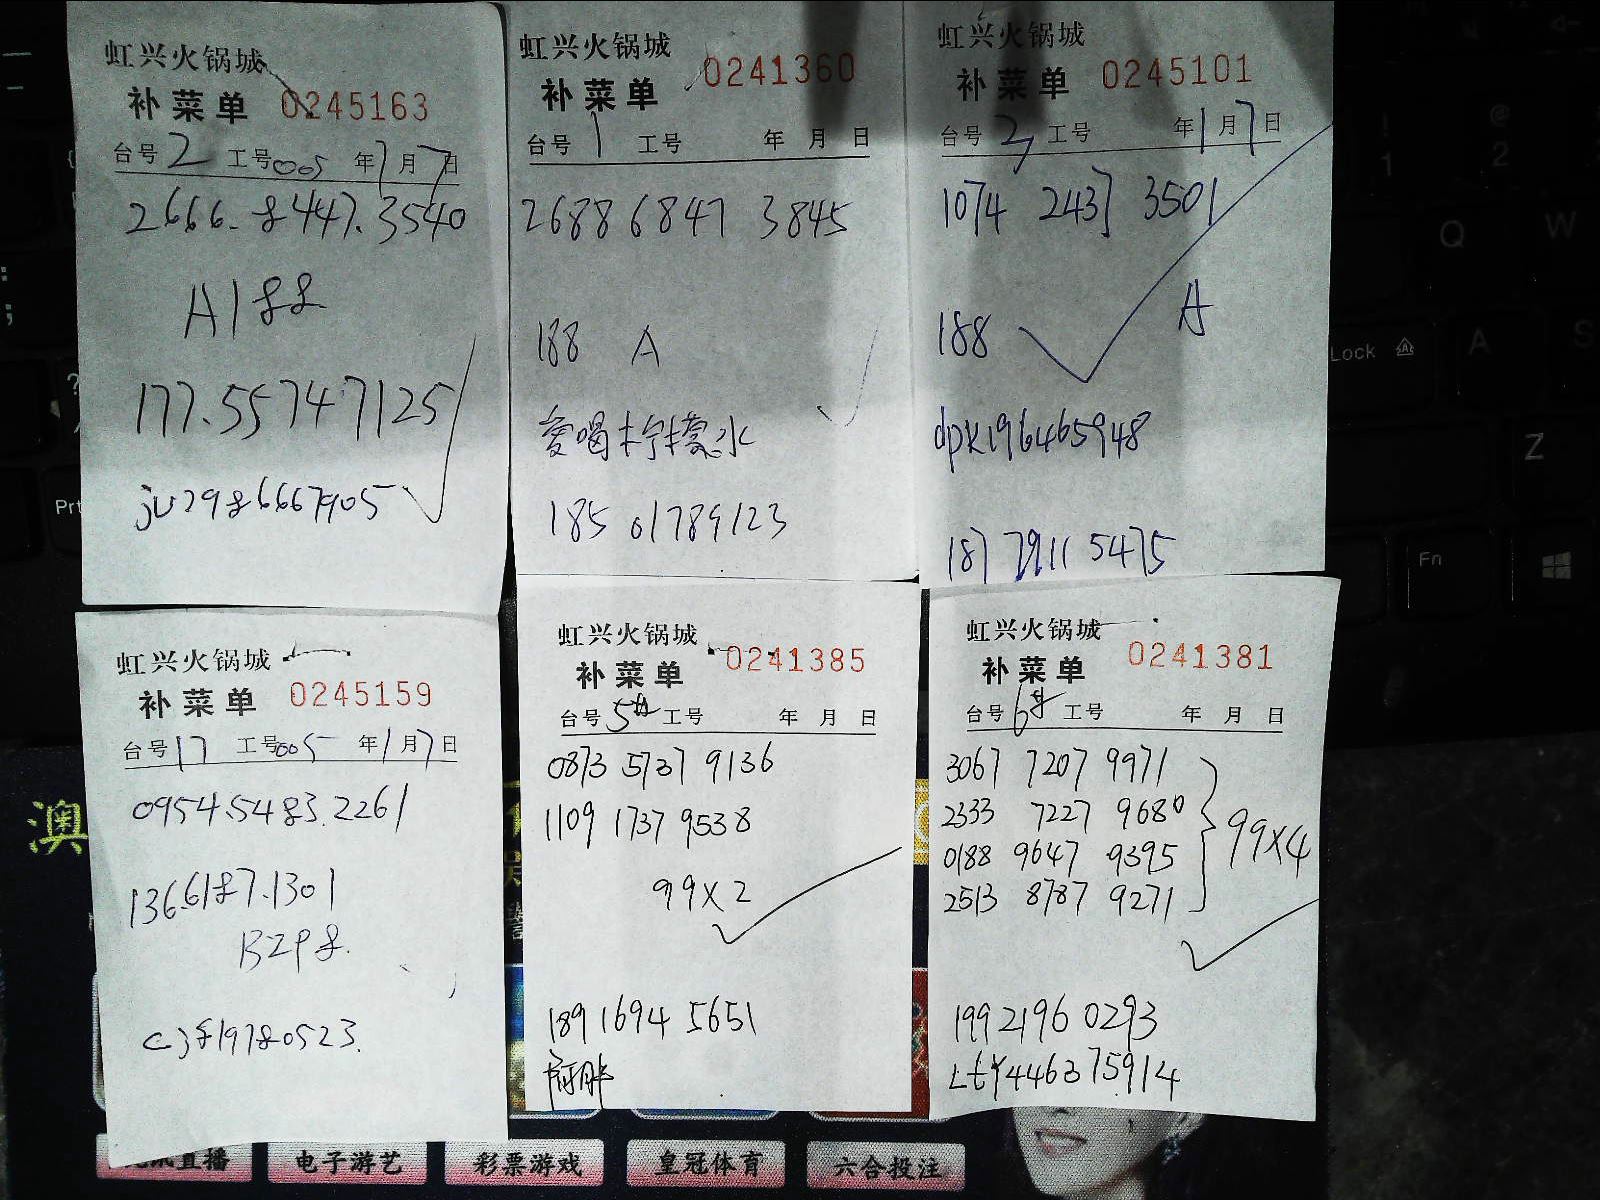 虹兴火锅城
补菜单 0245163
台号 2 工号 005 年 1 月 7 日
2666.8447.3540
A188
177.55747125
ju2986667905
虹兴火锅城
补菜单 0241360
台号 1 工号 年 月 日
2688 6847 3845
188 A
爱喝柠檬水
185 01789123
虹兴火锅城
补菜单 0245101
台号 2 工号 年 1 月 7 日
1074 2437 3501
188 A
dpk196465948
187 7911 5475
虹兴火锅城
补菜单 0245159
台号 17 工号 005 年 1 月 7 日
0954.5483.2261
136.6187.1301
B298.
C3819780523.
虹兴火锅城
补菜单 0241385
台号 5台 工号 年 月 日
0873 5737 9136
1109 1737 9538
99×2
189 1694 5651
虹兴火锅城
补菜单 0241381
台号 6 工号 年 月 日
3067 7207 9971
2333 7227 9680
0188 9647 9395
2513 8787 9271
99×4
199 2196 0293
LtY446375914
澳
直播
电子游艺
彩票游戏
皇冠体育
六合投注
Prt
Lock
A
S
Q
W
Z
Fn
!
1
@
2